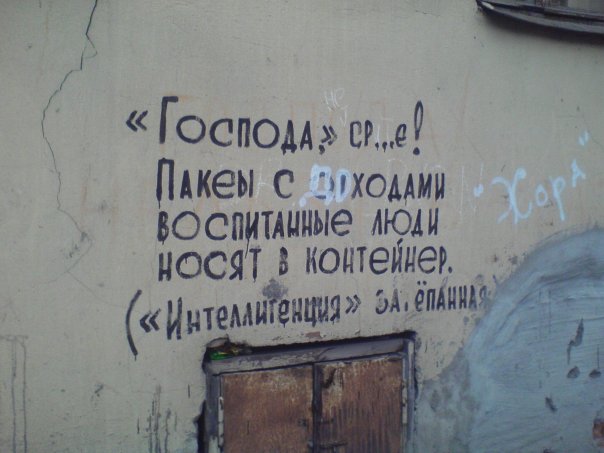 не
«Господа,» ср...е!
Пакеы с доходами
"Хоря"
воспитанные люди
носят в контейнер.
(«Интеллигенция» за.ёпанная